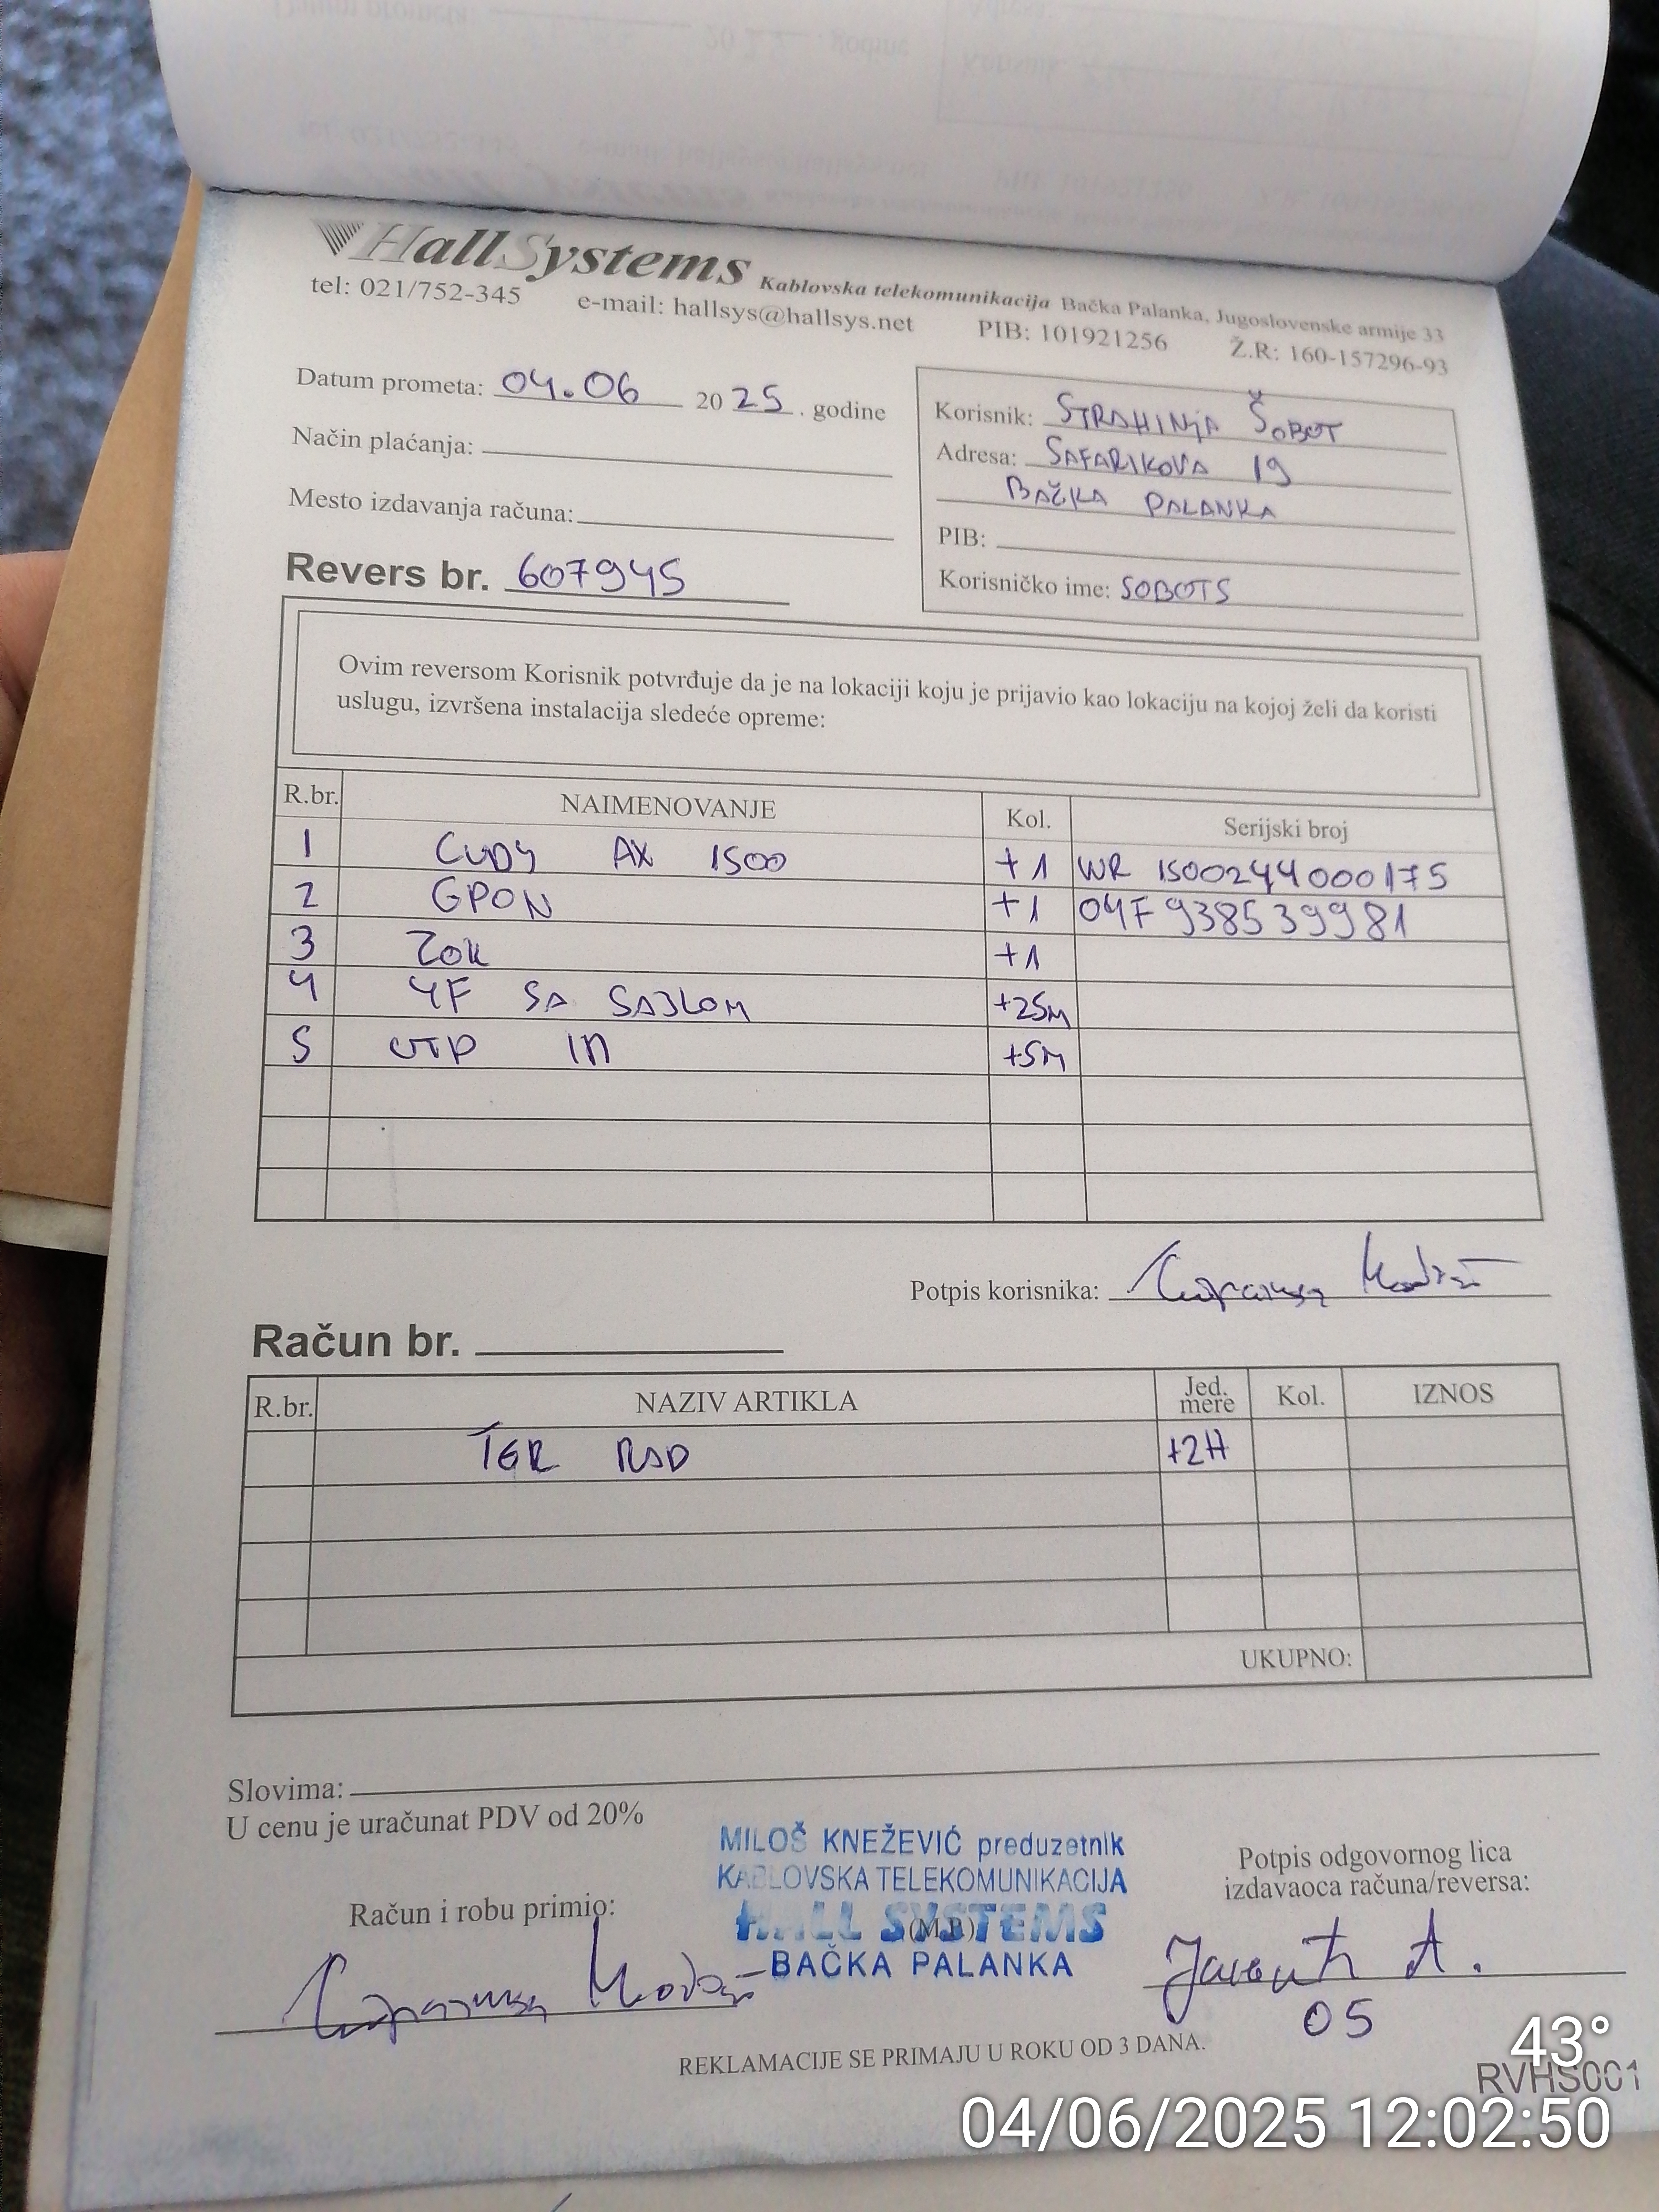 HallSystems Kablovska telekomunikacija Bačka Palanka, Jugoslovenske armije 33
tel: 021/752-345 e-mail: hallsys@hallsys.net PIB: 101921256 Ž.R: 160-157296-93
Datum prometa: 04.06 2025. godine
Način plaćanja:
Mesto izdavanja računa:
Revers br. 607945
Korisnik: STRAHINJA ŠOBOT
Adresa: SAFARIKOVA 19
BAČKA PALANKA
PIB:
Korisničko ime: SOBOTS
Ovim reversom Korisnik potvrđuje da je na lokaciji koju je prijavio kao lokaciju na kojoj želi da koristi
uslugu, izvršena instalacija sledeće opreme:
R.br. NAIMENOVANJE Kol. Serijski broj
1 CUDY AX 1500 +1 WR 1500244000175
2 GPON +1 04F938539981
3 ZOK +1
4 4F SA SAJLOM +25M
5 UTP IN +5M
Potpis korisnika:
Račun br.
R.br. NAZIV ARTIKLA Jed. mere Kol. IZNOS
TER RAD +2H
UKUPNO:
Slovima:
U cenu je uračunat PDV od 20%
MILOŠ KNEŽEVIĆ preduzetnik
KABLOVSKA TELEKOMUNIKACIJA
HALL SYSTEMS
(M.P)
BAČKA PALANKA
Račun i robu primio:
Potpis odgovornog lica
izdavaoca računa/reversa:
A.
05
REKLAMACIJE SE PRIMAJU U ROKU OD 3 DANA.
43°
RVHS001
04/06/2025 12:02:50